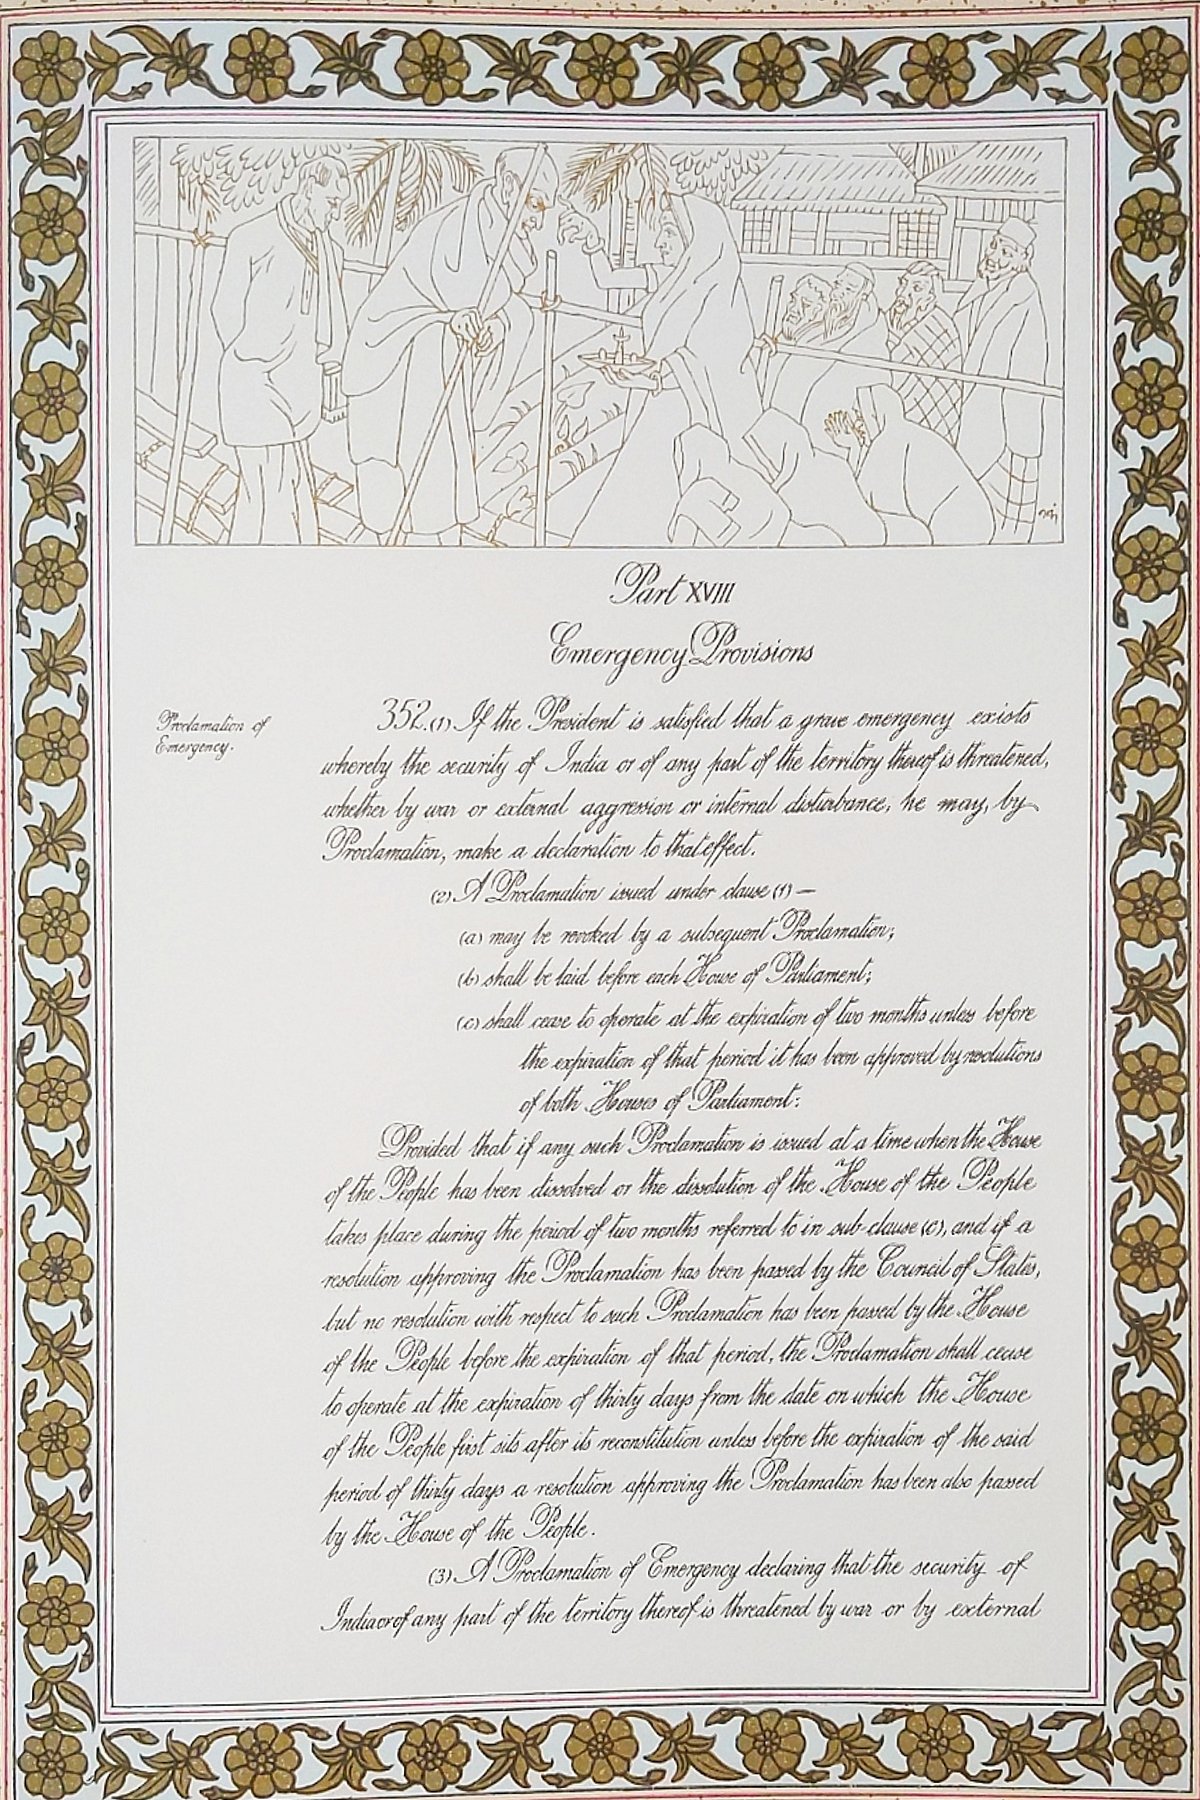 Part XVIII
Emergency Provisions
Proclamation of
Emergency.
352.(1) If the President is satisfied that a grave emergency exists
whereby the security of India or of any part of the territory thereof is threatened,
whether by war or external aggression or internal disturbance, he may, by
Proclamation, make a declaration to that effect.
(2) A Proclamation issued under clause (1) —
(a) may be revoked by a subsequent Proclamation;
(b) shall be laid before each House of Parliament;
(c) shall cease to operate at the expiration of two months unless before
the expiration of that period it has been approved by resolutions
of both Houses of Parliament:
Provided that if any such Proclamation is issued at a time when the House
of the People has been dissolved or the dissolution of the House of the People
takes place during the period of two months referred to in sub-clause (c), and if a
resolution approving the Proclamation has been passed by the Council of States,
but no resolution with respect to such Proclamation has been passed by the House
of the People before the expiration of that period, the Proclamation shall cease
to operate at the expiration of thirty days from the date on which the House
of the People first sits after its reconstitution unless before the expiration of the said
period of thirty days a resolution approving the Proclamation has been also passed
by the House of the People.
(3) A Proclamation of Emergency declaring that the security of
India or of any part of the territory thereof is threatened by war or by external